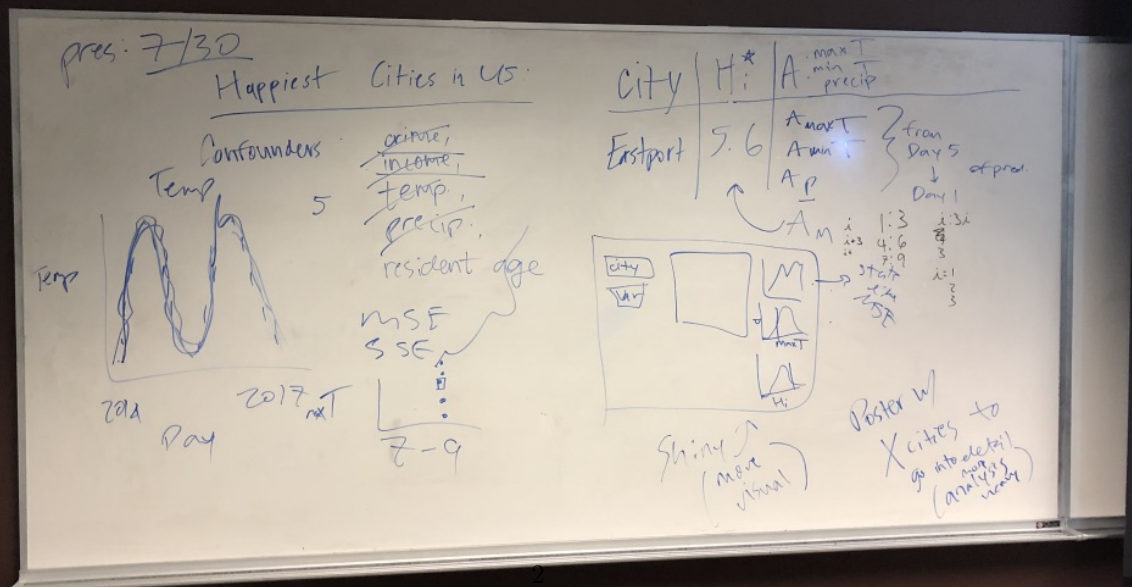 pres: 7/30
Happiest Cities in US
Confounders
crime,
income,
temp.,
precip.,
resident age
Temp
5
Temp
2014
2017
Day
MSE
SSE
maxT
7-9
City
Hi*
A
max T
min T
precip
Eastport
5.6
A maxT
A minT
A P
from
Day 5
↓
Day 1
of pred.
A M
i
1:3
i+3
4:6
7:9
i:3i
3
i=1
2
3
city
Var
maxT
Hi
stats
like
MSE
Shiny
(more
visual)
Poster w/
X cities to
go into detail
(more
analysis
2